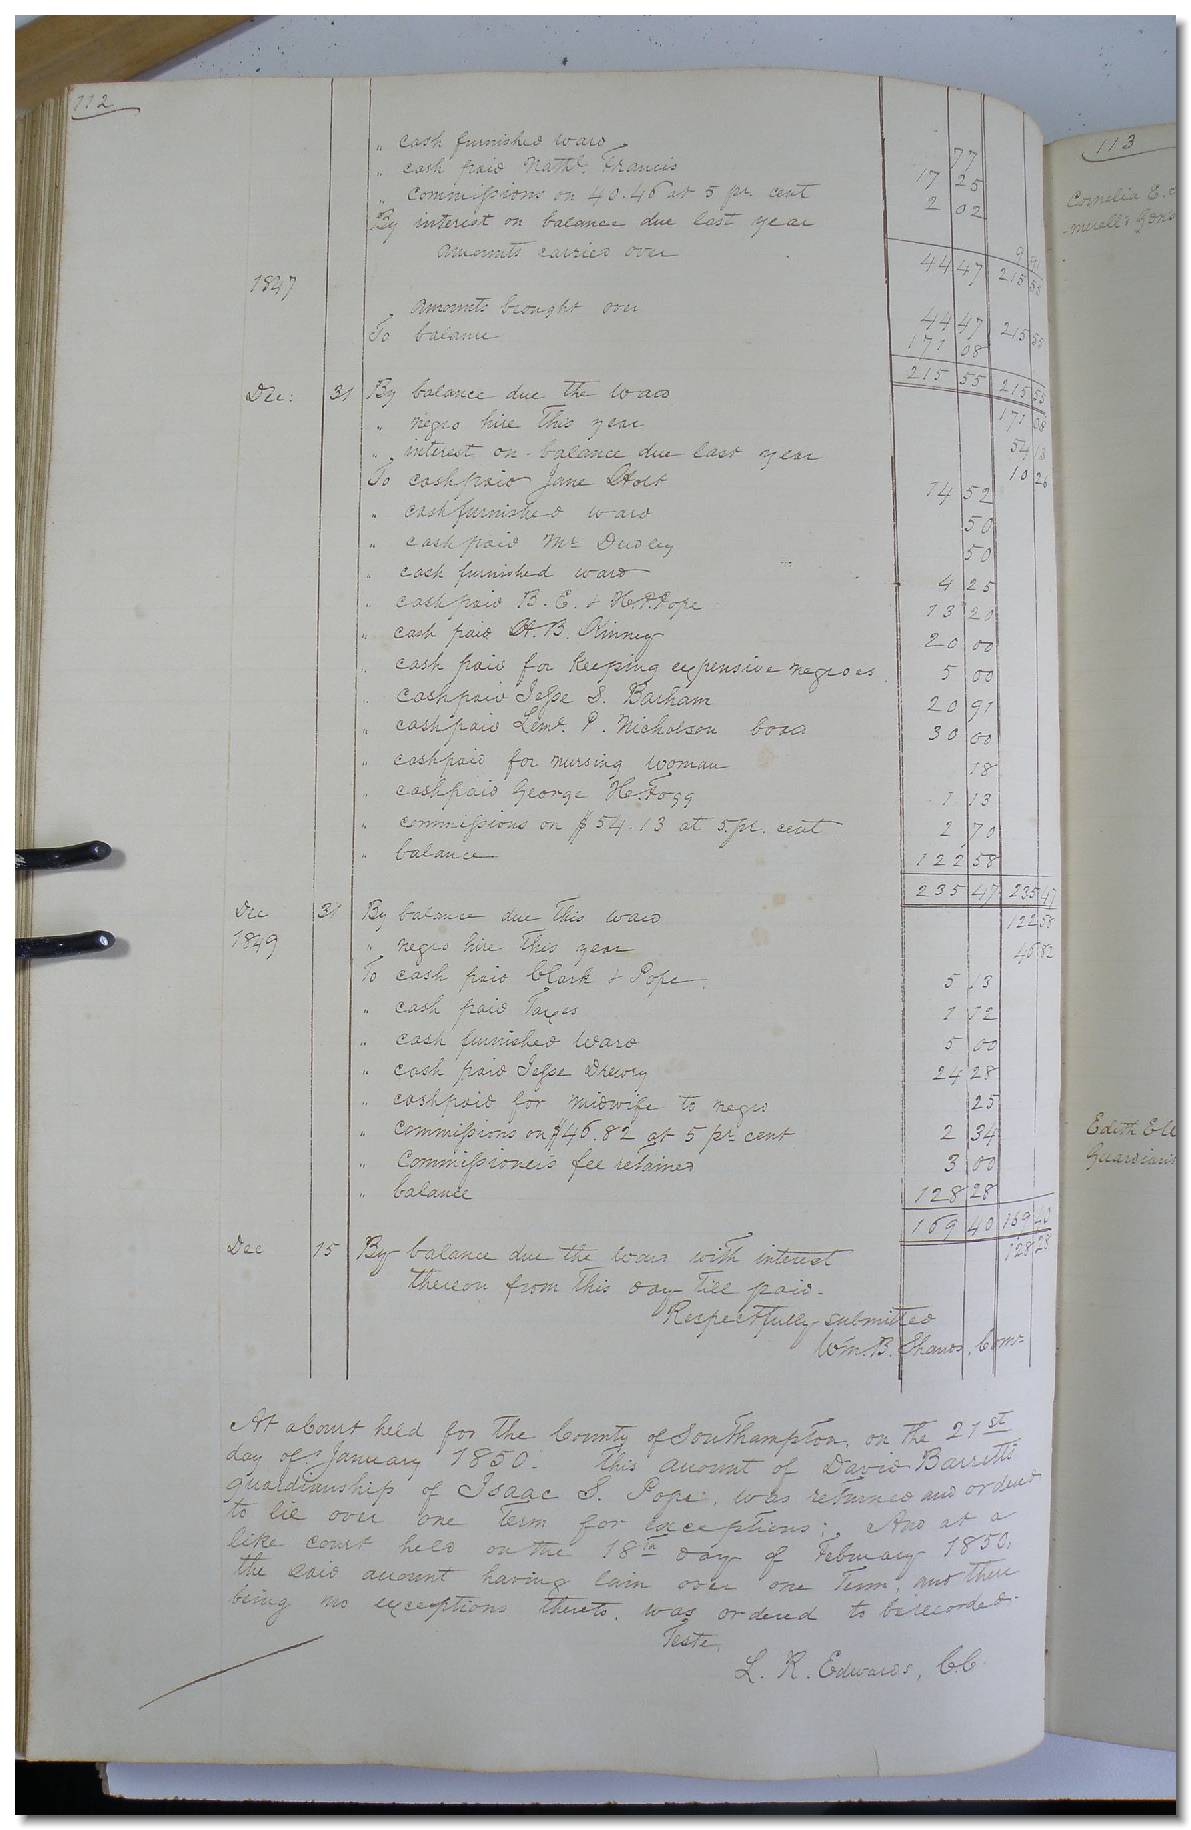 112
" cash furnished ward 77
" cash paid Nathl. Francis 17 25
" commissions on 40.46 at 5 pr. cent 2 02
By interest on balance due last year 9 91
amounts carried over 44 47 215 55
1847
amounts brought over 44 47 215 55
To balance 171 08
215 55 215 55
Dec: 31 By balance due the ward 171 08
" negro hire this year 54 13
" interest on balance due last year 10 26
To cash paid Jane Holt 14 52
" cash furnished ward 50
" cash paid Mr Dudley 50
" cash furnished ward 4 25
" cash paid B. E. & H. P. Pope 13 20
" cash paid H. B. Kinney 20 00
" cash paid for keeping expensive negroes 5 00
" cash paid Jesse S. Barham 20 91
" cash paid Leml. P. Nicholson board 30 00
" cash paid for nursing woman 18
" cash paid George H. Fogg 1 13
" commissions on $54.13 at 5 pr. cent 2 70
" balance 122 58
235 47 235 47
Dec 31 By balance due this ward 122 58
1849 " negro hire this year 46 82
To cash paid Clark & Pope 5 13
" cash paid Taxes 1 12
" cash furnished ward 5 00
" cash paid Jesse Drewry 24 28
" cash paid for midwife to negro 25
" commissions on $46.82 at 5 pr cent 2 34
" Commissioners fee retained 3 00
" balance 128 28
169 40 169 40
Dec 15 By balance due the ward with interest 128 28
thereon from this day till paid.
Respectfully submitted
Wm. B. Shands, Comr.
At a Court held for the County of Southampton, on the 21st
day of January 1850. This account of David Barretts
guardianship of Isaac S. Pope, was returned and ordered
to lie over one term for exceptions; And at a
like court held on the 18th day of February 1850,
the said account having lain over one term, and there
being no exceptions thereto, was ordered to be recorded.
Teste,
L. R. Edwards, C.C.
113
Cornelia E. &
Guardians